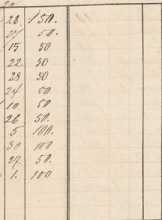 28 150.
27 50.
15 50
22 50
28 50
24 50
10 50
26 50.
5 100.
30 100
27 50.
1. 100